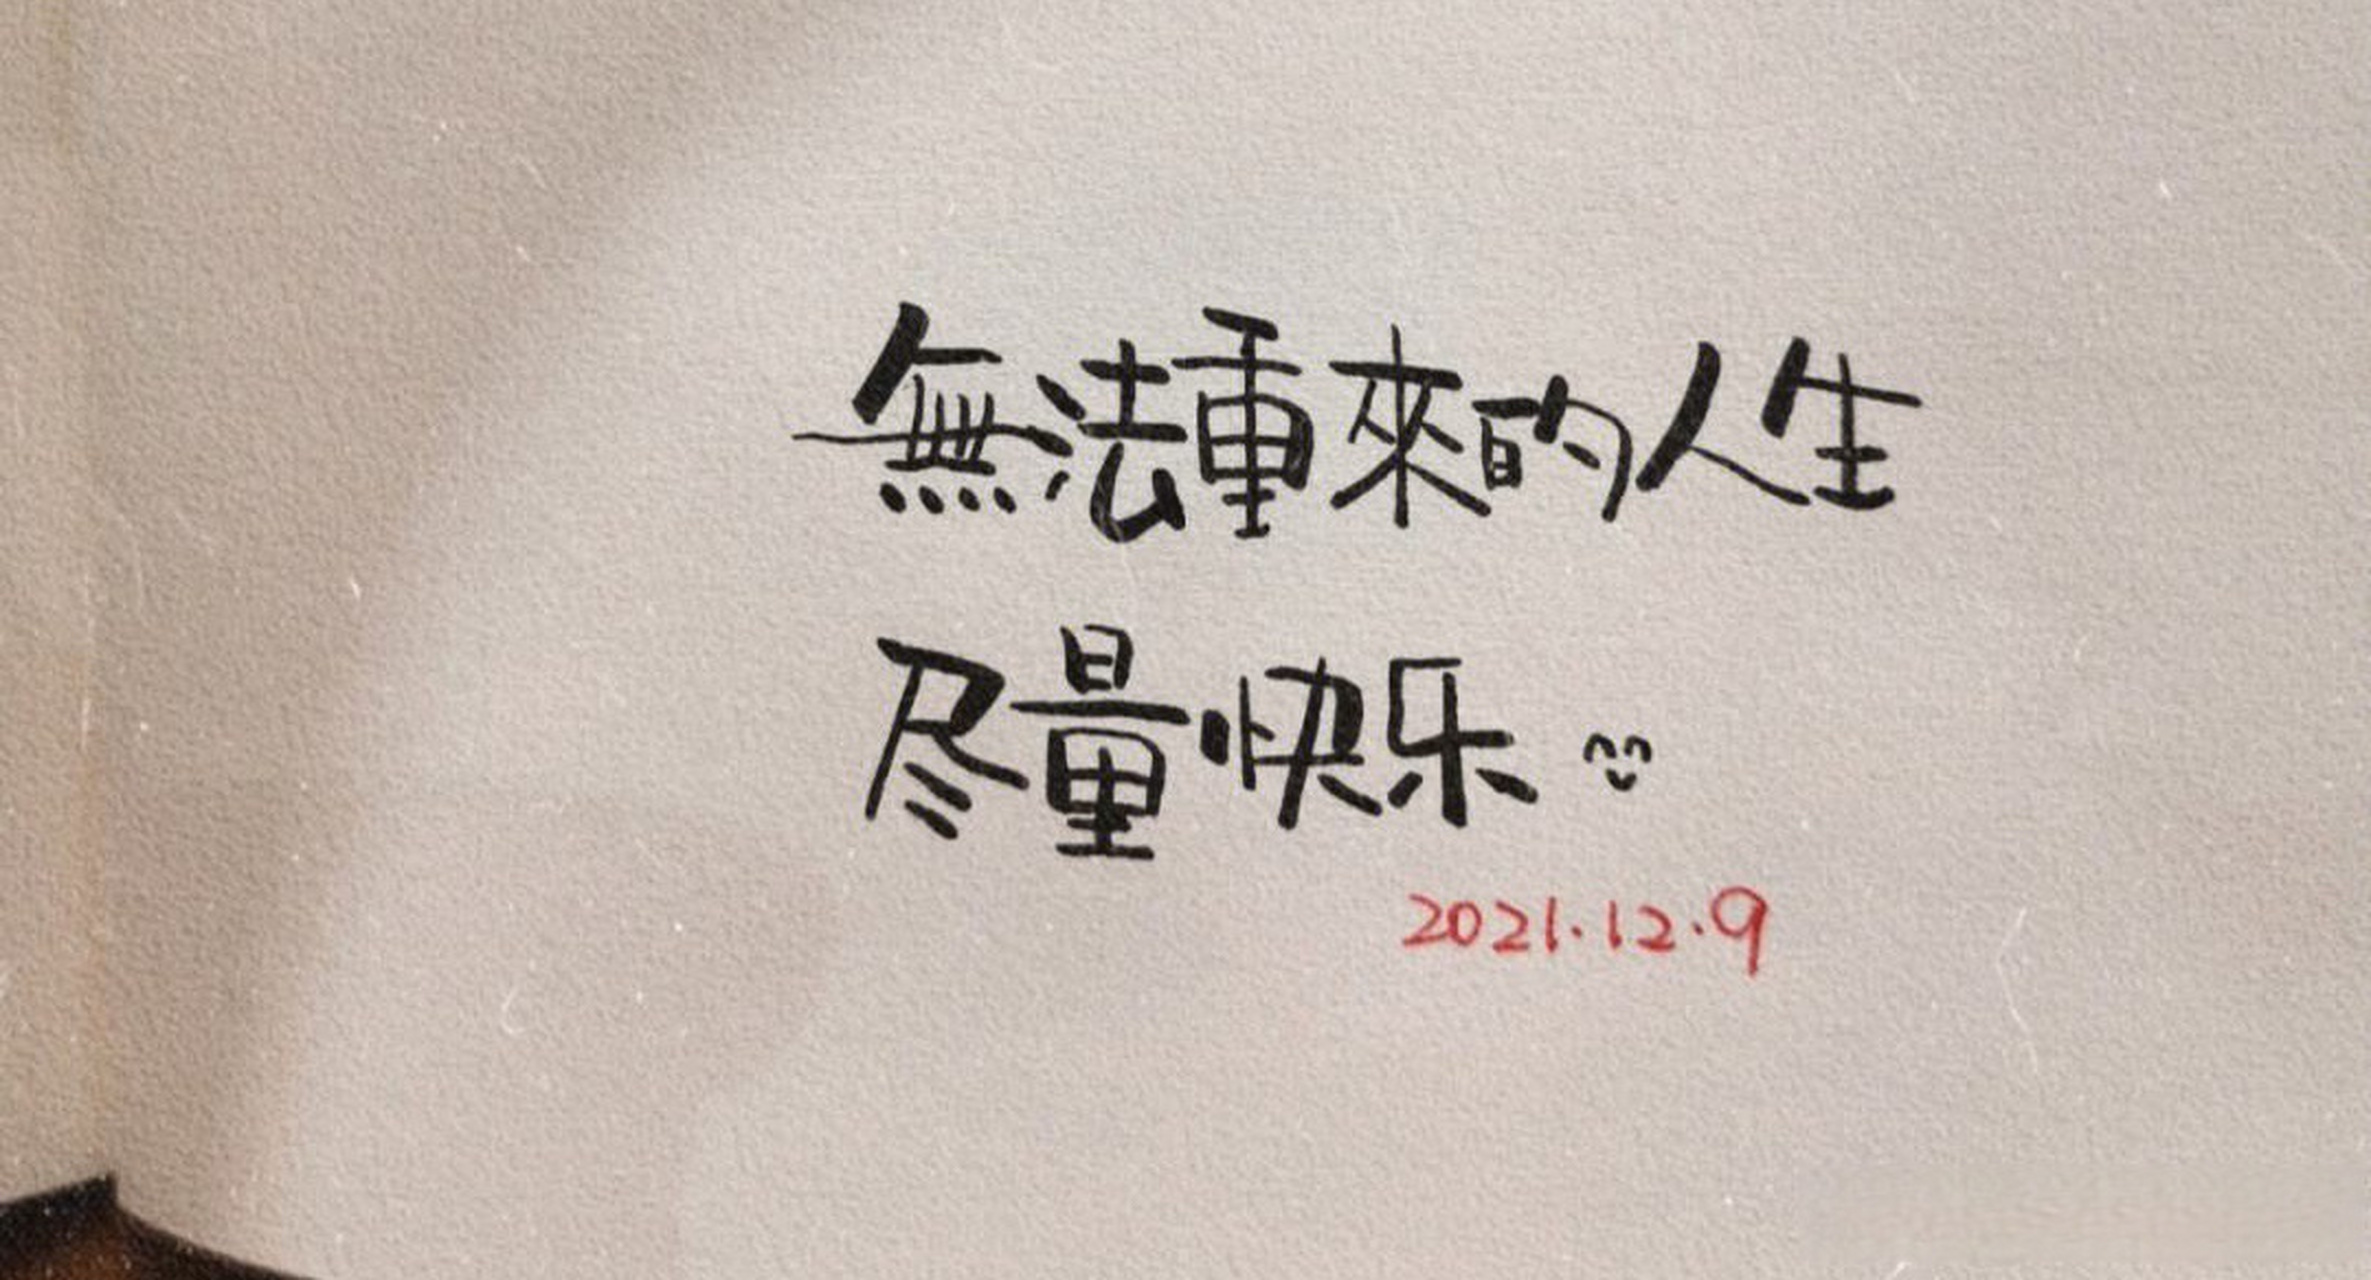 無法重來的人生
尽量快乐
2021.12.9